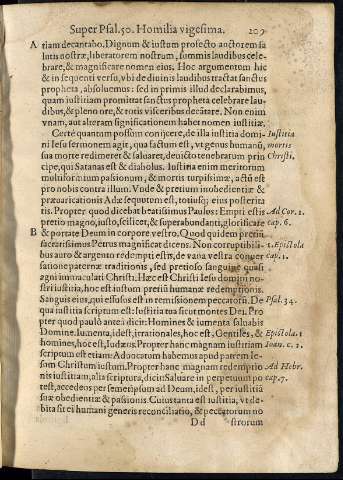 Super Psal. 50. Homilia vigesima. 209
A tiam decantabo. Dignum & iustum profecto auctorem sa
lutis nostræ, liberatorem nostrum, summis laudibus cele-
brare, & magnificare nomen eius. Hoc argumentum hic
& in sequenti versu, vbi de diuinis laudibus tractat sanctus
propheta, absoluemus: sed in primis illud declarabimus,
quam iustitiam promittat sanctus propheta celebrare lau-
dibus, & pleno ore, & totis visceribus decãtare. Non enim
vnam, aut alteram significationem habet nomen iustitiæ.
Certè quantum possum conijcere, de illa iustitia domi- Iustitia
ni Iesu sermonem agit, qua factum est, vt genus humanũ, mortis
sua morte redimeret & saluaret, deuicto tenebratum prin Christi,
cipe, qui Satanas est & diabolus. Iustitia enim meritorum
multiformium passionum, & mortis turpissimæ, actũ est
pro nobis contra illum. Vnde & pretium inobedientiæ &
præuaricationis Adæ sequutum est, totiusq; eius posterita
tis. Propter quod dicebat beatissimus Paulus: Empti estis Ad Cor. 1.
pretio magno, iusto, scilicet, & superabundanti, glorificate cap. 6.
B & portate Deum in corpore vestro. Quod quidem pretiũ
sacratissimus Petrus magnificat dicens. Non corruptibili- 1. Epistola
bus auro & argento redempti estis, de vana vestra conuer cap. 1.
satione paternæ traditionis, sed pretioso sanguine quasi
agni immaculati Christi. Hæc est Christi Iesu domini no-
stri iustitia, hoc est iustum pretiũ humanæ redemptionis.
Sanguis eius, qui effusus est in remissionem peccatorũ. De Psal. 34.
qua iustitia scriptum est: Iustitia tua sicut montes Dei. Pro
pter quod paulo antea dicit: Homines & iumenta saluabis
Domine. Iumenta, idest, irrationales, hoc est, Gentiles, & Epistola. 1
homines, hoc est, Iudæus. Propter hanc magnam iustitiam Ioan. c. 2.
scriptum est etiam: Aduocatum habemus apud patrem Ie-
sum Christum iustum. Propter hanc magnam redemptio Ad Hebr.
nis iustitiam, alia scriptura, dicit: Saluare in perpetuum po cap. 7.
test, accedens per semetipsum ad Deum, idest, per iustitiã
suæ obedientiæ & passionis. Cuius tanta est iustitia, vt de-
bita sit ei humani generis reconciliatio, & peccatorum no
D d strorum